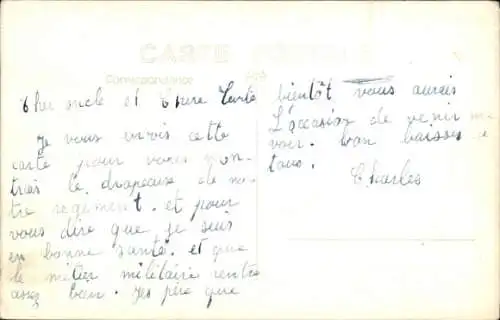 CARTE POSTALE
Correspondance
Cher oncle et Chere Tante
Je vous envois cette
carte pour vous mon-
trais le drapeaux de no-
tre regement. et pour
vous dire que je suis
en bonne santé. et que
le métier militaire rentre
assez bien. Jes père que
bientôt vous aurais
L'occasion de venir me
voir. bon baisses a
tous.
Charles